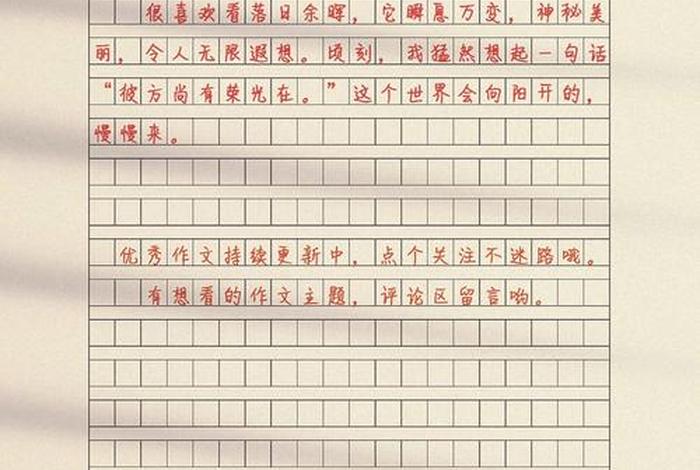 很喜欢看落日余晖，它瞬息万变，神秘美
丽，令人无限遐想。顷刻，我猛然想起一句话
“彼方尚有荣光在。”这个世界会向阳开的，
慢慢来。
优秀作文持续更新中，点个关注不迷路哦。
有想看的作文主题，评论区留言哟。